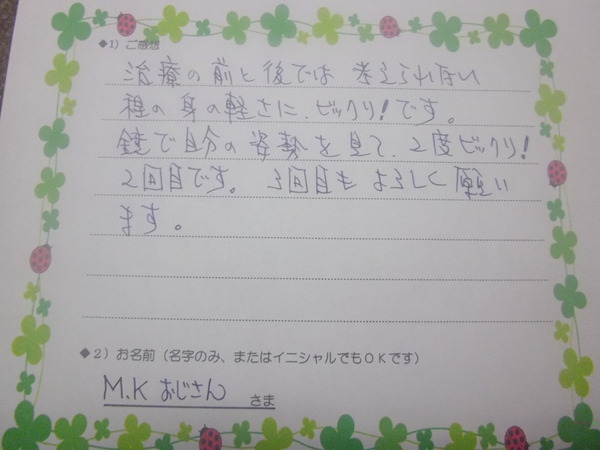 ◆1）ご感想
治療の前と後では 考えられない
程の身の軽さに、ビックリ!です。
鏡で自分の姿勢を見て、2度ビックリ!
2回目です。 3回目もよろしく願い
ます。
◆2）お名前（名字のみ、またはイニシャルでもＯＫです）
M.K おじさん さま